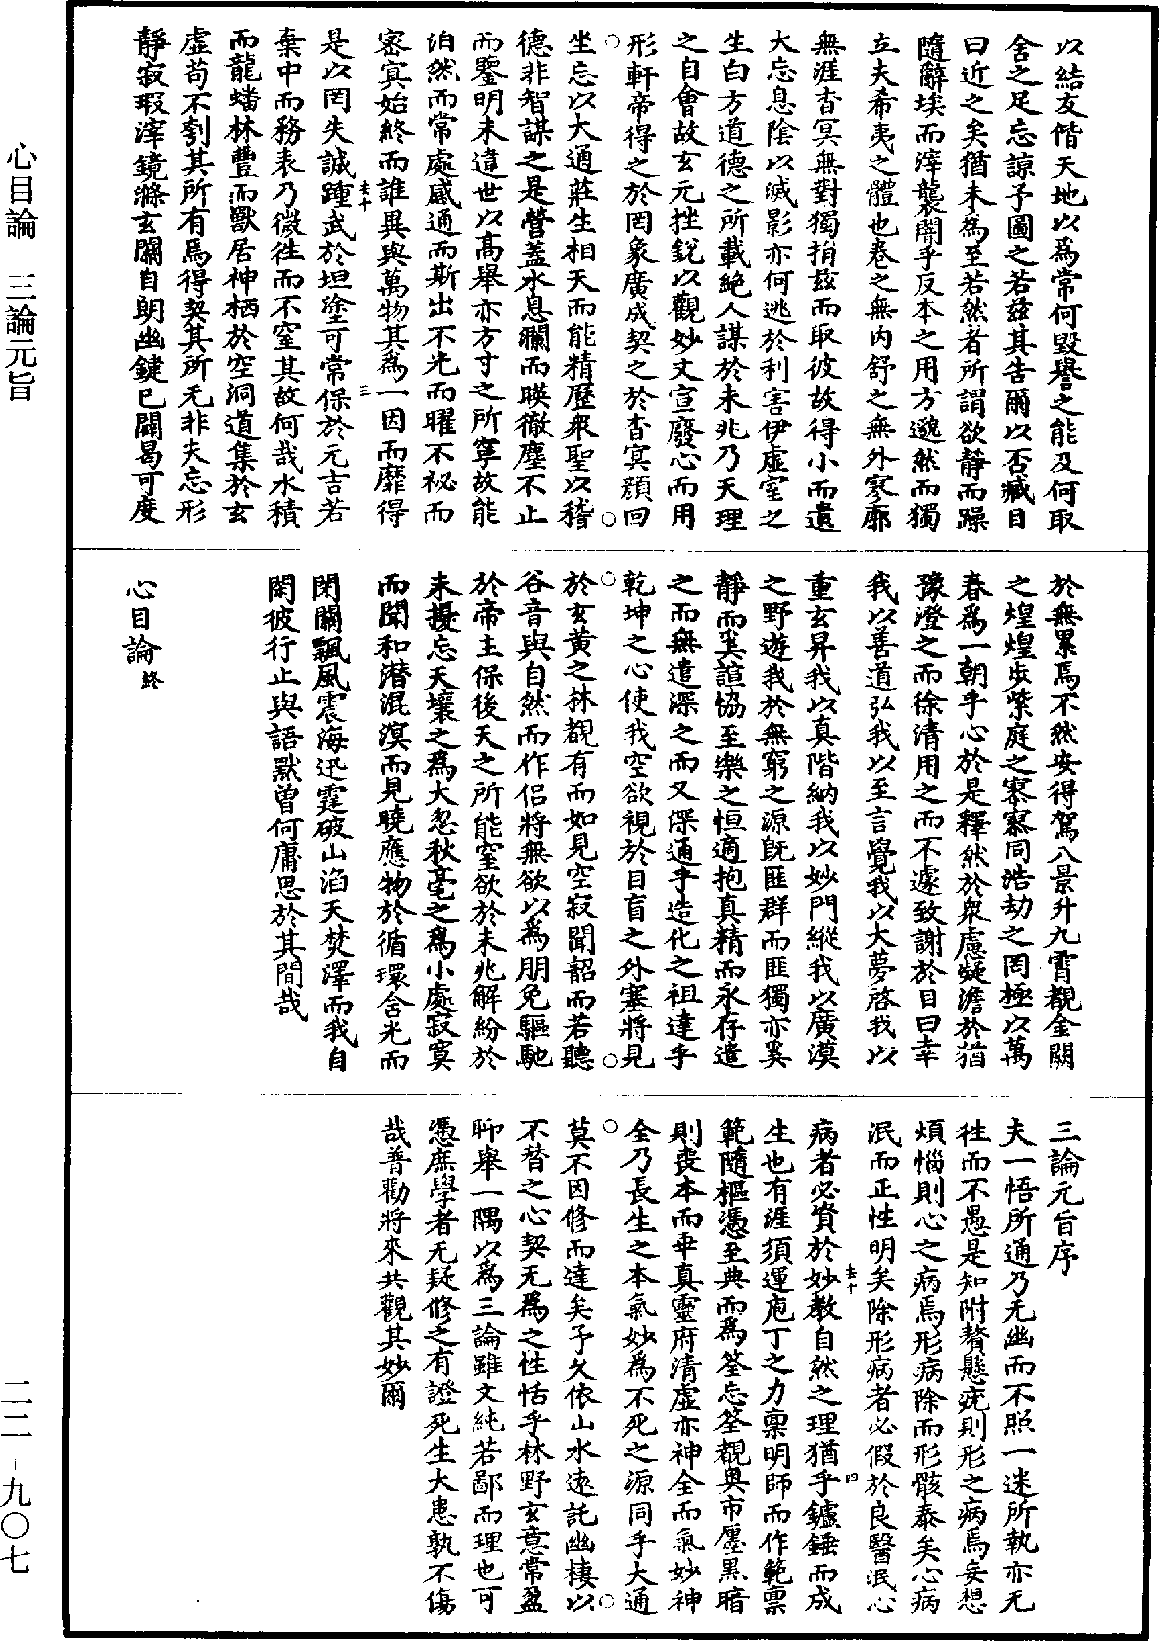 心目論　三論元旨
二二－九〇七
以結友偕天地以爲常何毀譽之能及何取
舍之足忘諒予圖之若茲其告爾以否臧目
曰近之矣猶未爲至若然者所謂欲靜而躁
隨辭埃而滓襲闇乎反本之用方邈然而獨
立夫希夷之體也卷之無内舒之無外寥廓
無涯杳冥無對獨捐茲而取彼故得小而遺
大忘息陰以滅影亦何逃於利害伊虛室之
生白方道德之所載絶人謀於未兆乃天理
之自會故玄元挫銳以觀妙文宣廢心而用
形軒帝得之於罔象廣成契之於杳冥顔回
坐忘以大通莊生相天而能精歷衆聖以稽
德非智謀之是營蓋水息瀾而暎徹塵不止
而鑒明未違世以高舉亦方寸之所寧故能
泊然而常處感通而斯出不光而曜不祕而
密冥始終而誰異與萬物其爲一因而靡得
是以罔失誠踵武於坦塗可常保於元吉若
棄中而務表乃微徃而不窒其故何哉水積
而龍蟠林豐而獸居神栖於空洞道集於玄
虛苟不刳其所有焉得契其所无非夫忘形
靜寂瑕滓鏡滌玄關自朗幽鍵已闢曷可度
去十　三
於無累焉不然安得駕八景升九霄覩金闕
之煌煌步紫庭之寥寥同浩劫之罔極以萬
春爲一朝乎心於是釋然於衆慮凝澹於猶
豫澄之而徐清用之而不遽致謝於目曰幸
我以善道弘我以至言覺我以大夢啓我以
重玄昇我以真階納我以妙門縱我以廣漠
之野遊我於無窮之源旣匪群而匪獨亦奚
靜而奚諠協至樂之恒適抱真精而永存遣
之而無遣深之而又深通乎造化之祖達乎
乾坤之心使我空欲視於目盲之外塞將見
於玄黄之林覩有而如見空寂聞韶而若聽
谷音與自然而作侣將無欲以爲朋免驅馳
於帝主保後天之所能窒欲於未兆解紛於
未擾忘天壤之爲大忽秋毫之爲小處寂寞
而聞和潛混溟而見曉應物於循環含光而
閉關飄風震海迅霆破山滔天焚澤而我自
閑彼行止與語默曽何庸思於其間哉
心目論終
三論元旨序
夫一悟所通乃无幽而不照一迷所執亦无
徃而不愚是知附贅懸疣則形之病焉妄想
煩惱則心之病焉形病除而形骸泰矣心病
泯而正性明矣除形病者必假於良醫泯心
病者必資於妙教自然之理猶乎鑪錘而成
生也有涯須運庖丁之力禀明師而作範禀
範隨樞憑至典而爲筌忘筌覩奥市廛黒暗
則喪本而乖真靈府清虛亦神全而氣妙神
全乃長生之本氣妙爲不死之源同乎大通
莫不因修而達矣予久依山水遠託幽棲以
不替之心契无爲之性恬乎林野玄意常盈
聊舉一隅以爲三論雖文純若鄙而理也可
憑庶學者无疑修之有證死生大患孰不傷
哉普勸將來共觀其妙爾
去十　四